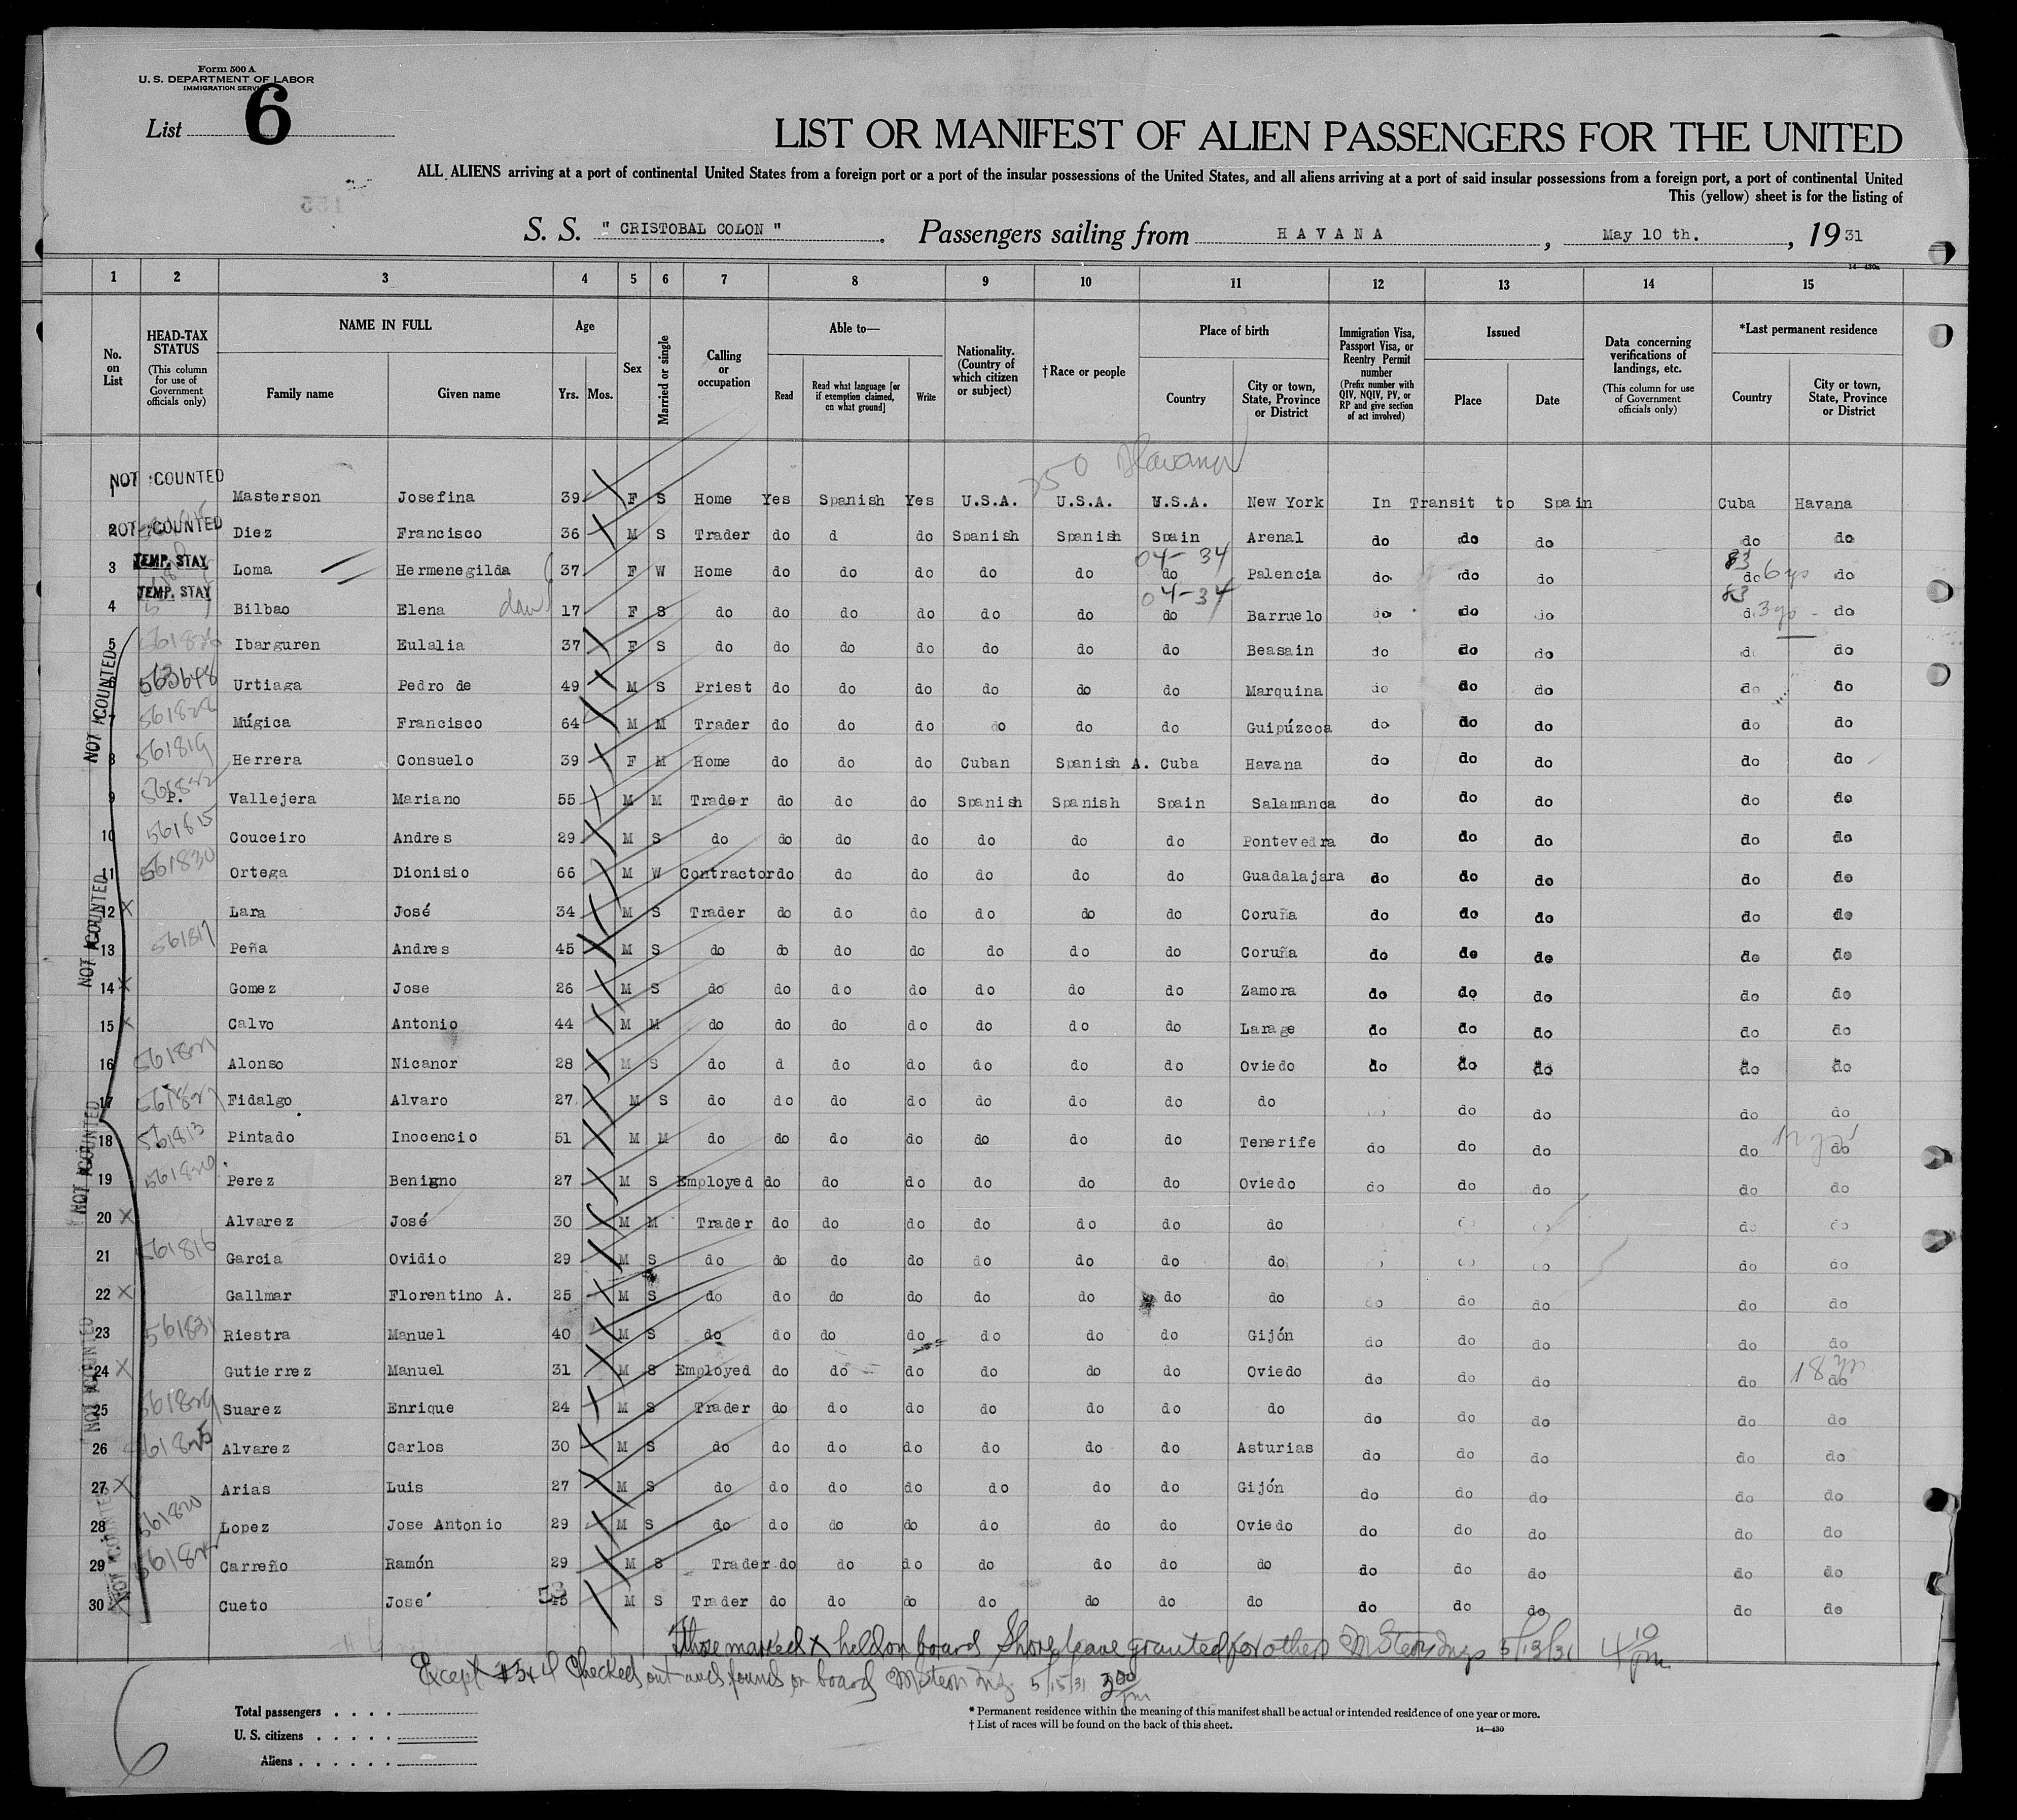 Form 500 A
U. S. DEPARTMENT OF LABOR
IMMIGRATION SERVICE
List 6
LIST OR MANIFEST OF ALIEN PASSENGERS FOR THE UNITED
ALL ALIENS arriving at a port of continental United States from a foreign port or a port of the insular possessions of the United States, and all aliens arriving at a port of said insular possessions from a foreign port, a port of continental United
This (yellow) sheet is for the listing of
S. S. " CRISTOBAL COLON " . Passengers sailing from HAVANA , May 10 th. , 19 31
14—430a
1 2 3 4 5 6 7 8 9 10 11 12 13 14 15
No. on List
HEAD-TAX STATUS (This column for use of Government officials only)
NAME IN FULL Family name Given name
Age Yrs. Mos.
Sex
Married or single
Calling or occupation
Able to— Read Read what language [or if exemption claimed, on what ground] Write
Nationality. (Country of which citizen or subject)
†Race or people
Place of birth Country City or town, State, Province or District
Immigration Visa, Passport Visa, or Reentry Permit number (Prefix number with QIV, NQIV, PV, or RP and give section of act involved)
Issued Place Date
Data concerning verifications of landings, etc. (This column for use of Government officials only)
*Last permanent residence Country City or town, State, Province or District
Havana
NOT COUNTED
1 Masterson Josefina 39 F S Home Yes Spanish Yes U.S.A. U.S.A. U.S.A. New York In Transit to Spain Cuba Havana
2 NOT COUNTED Diez Francisco 36 M S Trader do d do Spanish Spanish Spain Arenal do do do do do
04-34 83
3 TEMP. STAY Loma Hermenegilda 37 F W Home do do do do do do Palencia do do do do 6 yrs do
04-34 83
4 TEMP. STAY Bilbao Elena dau 17 F S do do do do do do do Barruelo do do do d 3 yo do
5 561826 Ibarguren Eulalia 37 F S do do do do do do do Beasain do do do d do
6 563648 Urtiaga Pedro de 49 M S Priest do do do do do do Marquina do do do do do
7 561828 Múgica Francisco 64 M M Trader do do do do do do Guipúzcoa do do do do do
8 561819 Herrera Consuelo 39 F M Home do do do Cuban Spanish A. Cuba Havana do do do do do
9 P. Vallejera Mariano 55 M M Trader do do do Spanish Spanish Spain Salamanca do do do do do
10 561815 Couceiro Andres 29 M S do do do do do do do Pontevedra do do do do do
11 561830 Ortega Dionisio 66 M W Contractor do do do do do do Guadalajara do do do do do
12 X Lara José 34 M S Trader do do do do do do Coruña do do do do do
13 561817 Peña Andres 45 M S do do do do do do do Coruña do do do do do
14 X Gomez Jose 26 M S do do do do do do do Zamora do do do do do
15 X Calvo Antonio 44 M M do do do do do do do Larage do do do do do
16 Alonso Nicanor 28 M S do d do do do do do Oviedo do do do do do
17 Fidalgo Alvaro 27 M S do do do do do do do do do do do do
18 561813 Pintado Inocencio 51 M M do do do do do do do Tenerife do do do do do
19 Perez Benigno 27 M S Employed do do do do do do Oviedo do do do do do
20 X Alvarez José 30 M M Trader do do do do do do do do
21 561816 Garcia Ovidio 29 M S do do do do do do do do do do
22 X Gallmar Florentino A. 25 M S do do do do do do do do do do do do do
23 561831 Riestra Manuel 40 M S do do do do do do do Gijón do do do do do
24 X Gutierrez Manuel 31 M S Employed do do do do do do Oviedo do do do do 18 yrs do
25 561829 Suarez Enrique 24 M S Trader do do do do do do do do do do do do
26 561825 Alvarez Carlos 30 M S do do do do do do do Asturias do do do do do
27 X Arias Luis 27 M S do do do do do do do Gijón do do do do do
28 561820 Lopez Jose Antonio 29 M S do do do do do do do Oviedo do do do do do
29 Carreño Ramón 29 M S Trader do do do do do do do do do do do do
30 X Cueto José 53 M S Trader do do do do do do do do do do do do
NOT COUNTED
NOT COUNTED
NOT COUNTED
NOT COUNTED
NOT COUNTED
Those marked X held on board Shore leave granted for others 5/13/31 4 10 pm
Except #3x4 Checked out and found on board 5/15/31 3 00 pm
6
Total passengers . . . .
U. S. citizens . . . . .
Aliens . . . . . .
* Permanent residence within the meaning of this manifest shall be actual or intended residence of one year or more.
† List of races will be found on the back of this sheet.
14—430